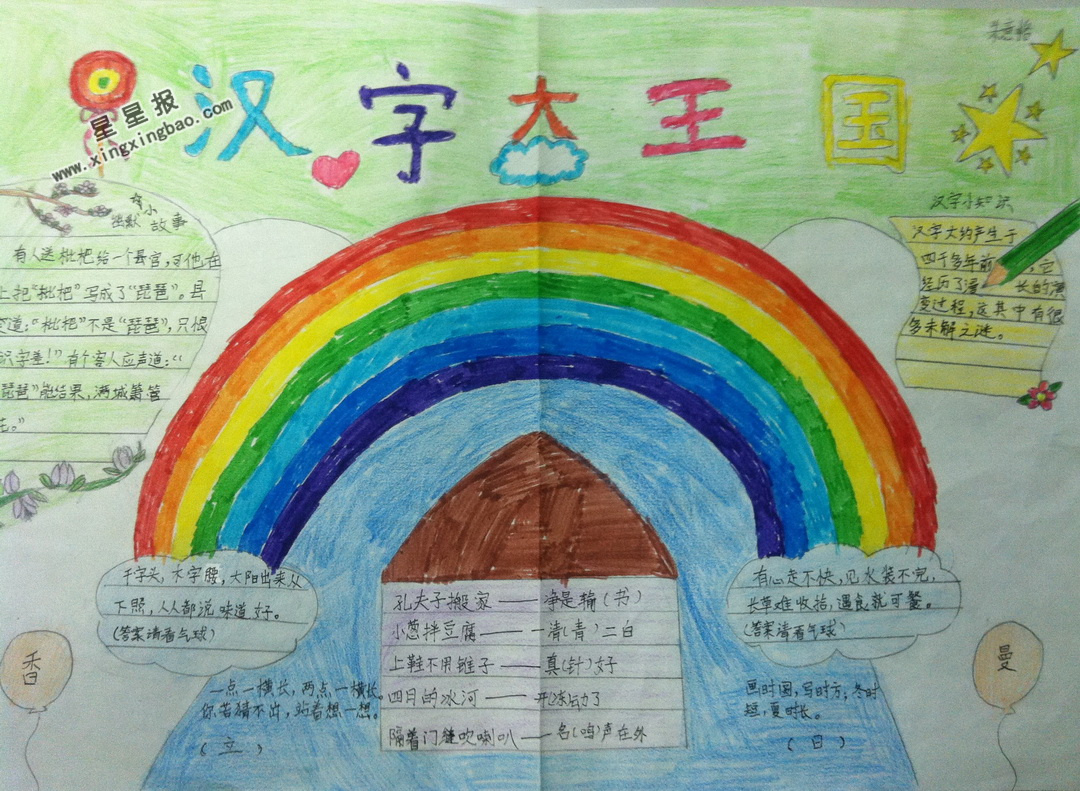 汉字大王国
星星报
www.xingxingbao.com
幽默小故事
有人送枇杷给一个县官,可他在
上把“枇杷”写成了“琵琶”。县
道:“枇杷”不是“琵琶”,只恨
识字差!”有个客人应声道:“
琵琶”能结果,满城箫管
汉字小知识
汉字大约产生于
四千多年前,它
经历了漫长的演
变过程,这其中有很
多未解之谜。
千字头,木字腰,太阳出来从
下照,人人都说味道好。
(答案请看气球)
香
一点一横长,两点一横长。
你若猜不出,站着想一想。
(立)
孔夫子搬家——净是输(书)
小葱拌豆腐——一清(青)二白
上鞋不用锥子——真(针)好
四月的冰河——开冻
隔着门缝吹喇叭——名(鸣)声在外
有心走不快,见水装不完,
长草难收拾,遇食就可餐。
(答案请看气球)
曼
画时圆,写时方,冬时
短,夏时长。
(日)